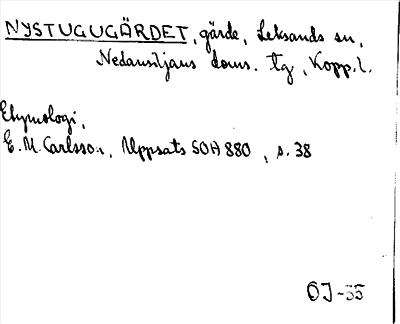 NYSTUGUGÄRDET, gärde, Leksands sn,
Nedansiljans doms. tg, Kopp. l.
Etymologi,
E. M. Carlsson, Uppsats SOA 880, s. 38
OJ-55